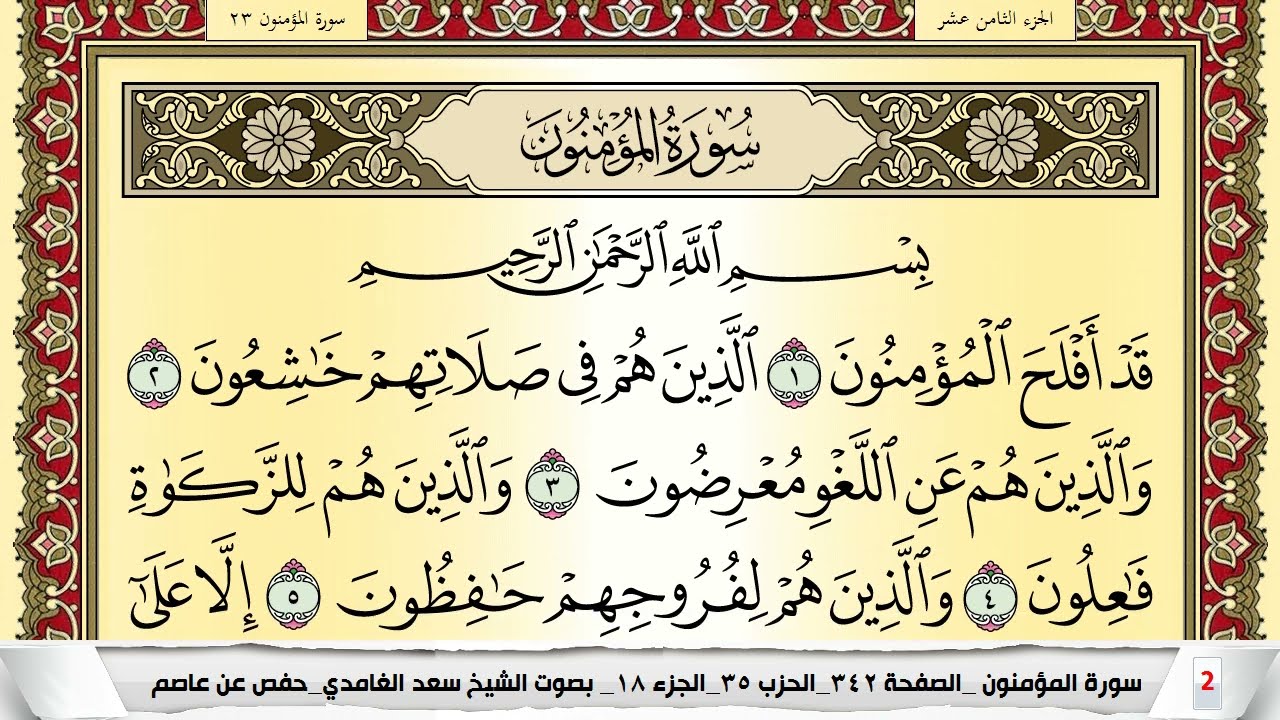 الجزء الثامن عشر
سورة المؤمنون ٢٣
سُورَةُ الْمُؤْمِنُونَ
بِسْمِ ٱللَّهِ ٱلرَّحْمَٰنِ ٱلرَّحِيمِ
قَدْ أَفْلَحَ ٱلْمُؤْمِنُونَ ١ ٱلَّذِينَ هُمْ فِى صَلَاتِهِمْ خَٰشِعُونَ ٢
وَٱلَّذِينَ هُمْ عَنِ ٱللَّغْوِ مُعْرِضُونَ ٣ وَٱلَّذِينَ هُمْ لِلزَّكَوٰةِ
فَٰعِلُونَ ٤ وَٱلَّذِينَ هُمْ لِفُرُوجِهِمْ حَٰفِظُونَ ٥ إِلَّا عَلَىٰٓ
2 سورة المؤمنون _الصفحة ٣٤٢_الحزب ٣٥_الجزء ١٨_ بصوت الشيخ سعد الغامدي_حفص عن عاصم